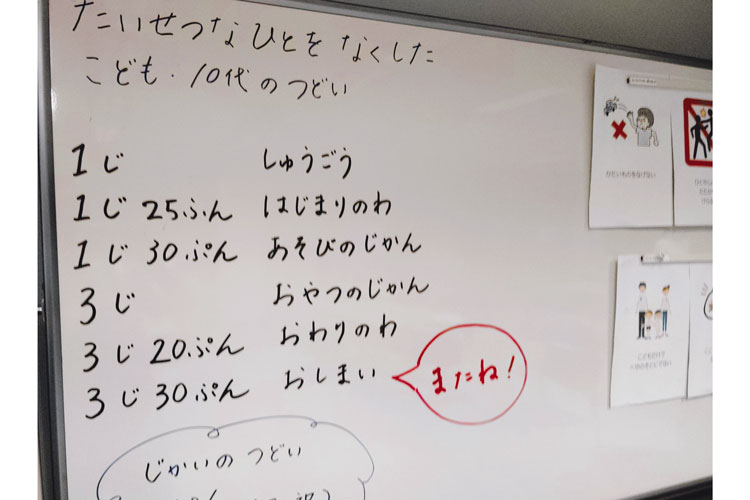 たいせつなひとをなくした
こども・10代のつどい
1じ しゅうごう
1じ25ふん はじまりのわ
1じ30ぷん あそびのじかん
3じ おやつのじかん
3じ20ぷん おわりのわ
3じ30ぷん おしまい
またね!
じかいの つどい
かたいものをなげない